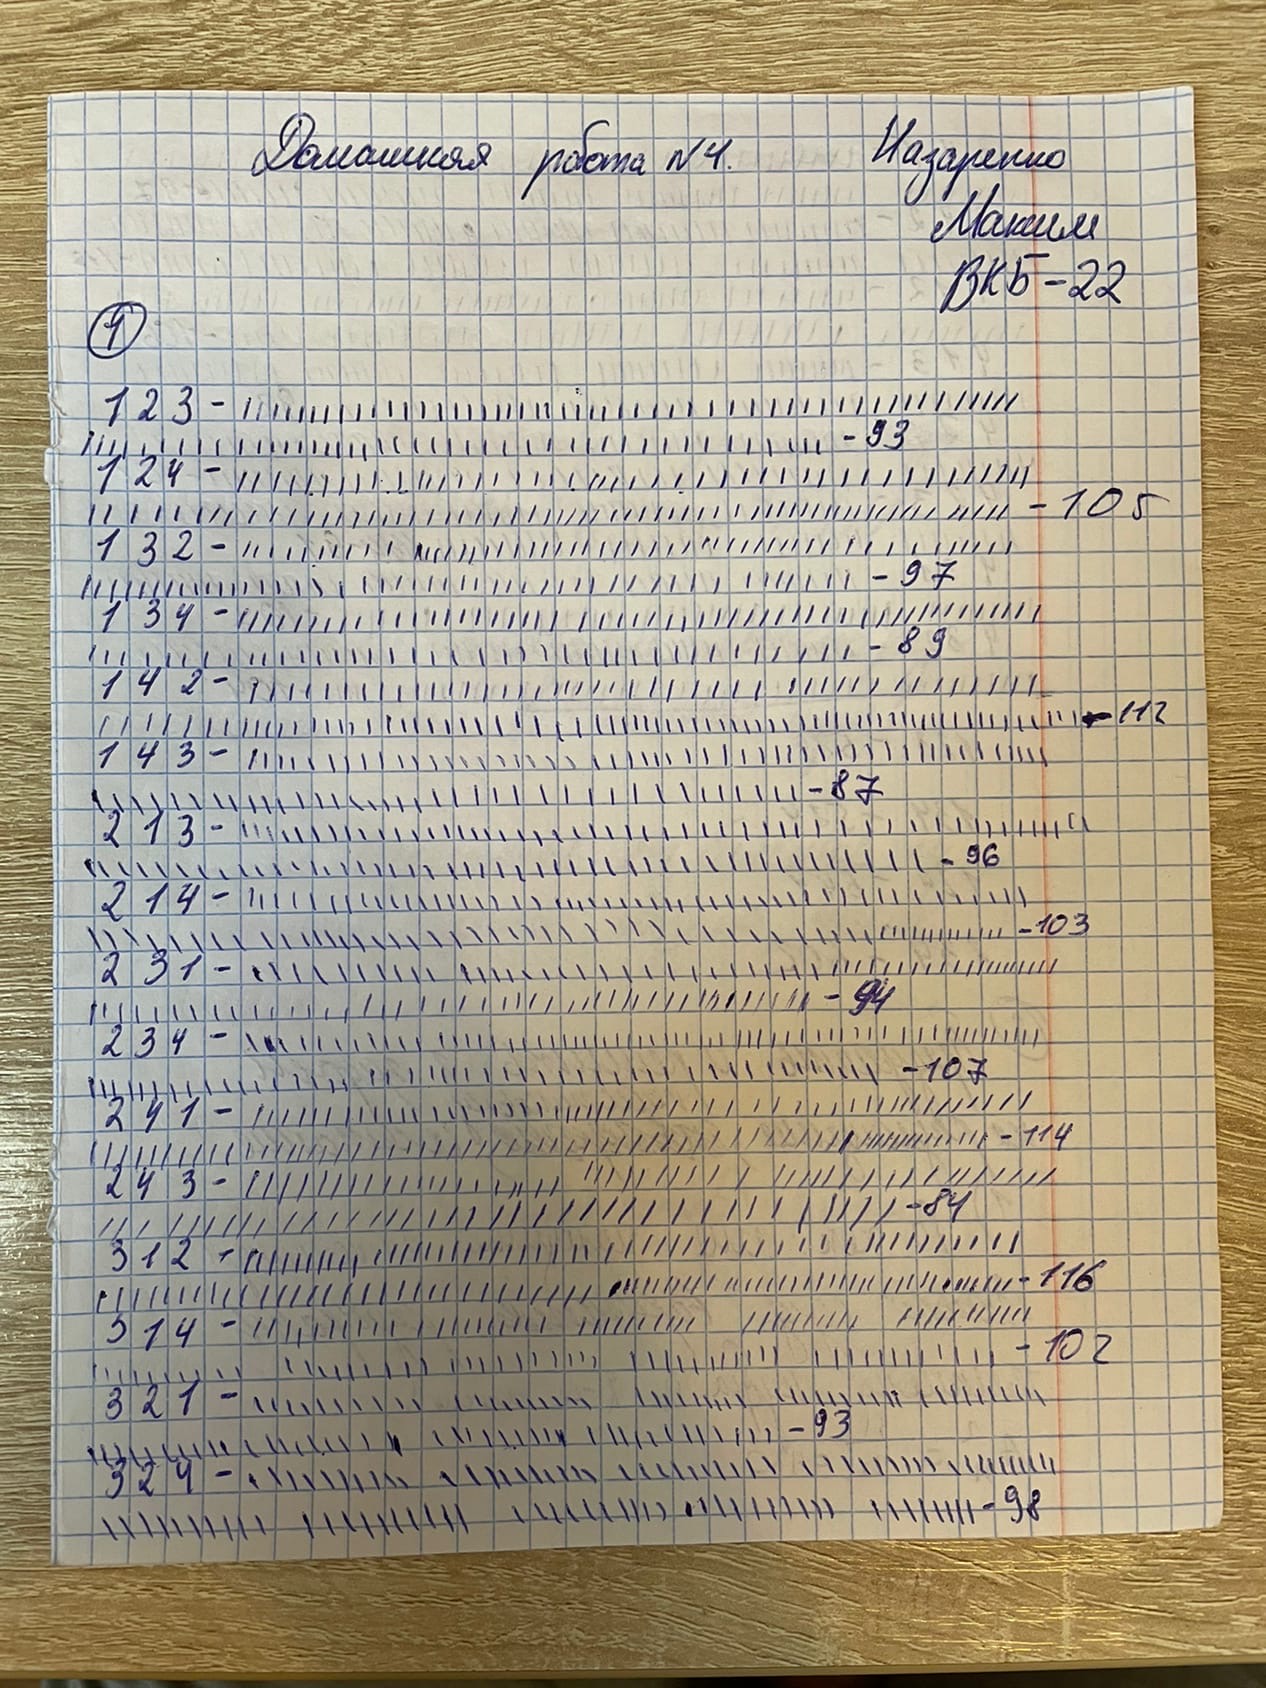 Домашняя работа №4. Назаренко
Максим
ВКБ-22
1
123 -
- 93
124 -
- 105
132 -
- 97
134 -
- 89
142 -
- 112
143 -
- 87
213 -
- 96
214 -
- 103
231 -
- 94
234 -
- 107
241 -
- 114
243 -
- 84
312 -
- 116
314 -
- 102
321 -
- 93
324 -
- 98